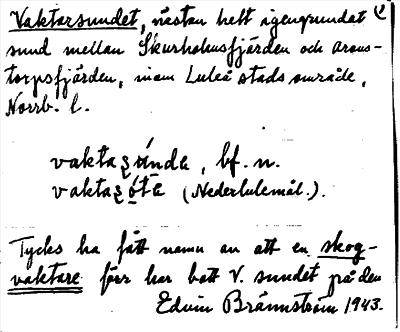 Vaktarsundet, nästan helt igengrundat
sund mellan Skurholmsfjärden och Arons-
torpsfjärden, inom Luleå stads område,
Norrb. l.
vaktaʂúnde, bf. n.
vaktaʂo̱ta (Nederlulemål.).
Tycks ha fått namn av att en skog-
vaktare förr har bott v. sundet på den
Edvin Brännström 1943.